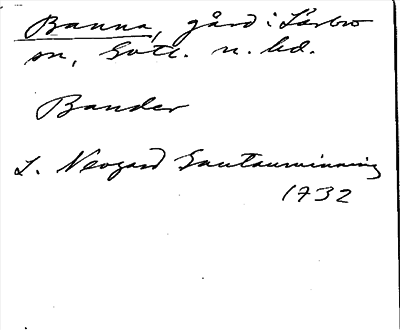 Banna, gård i Lärbro
sn, Gotl. n. hd.
Bander
L. Neogard Gautauminning
1732